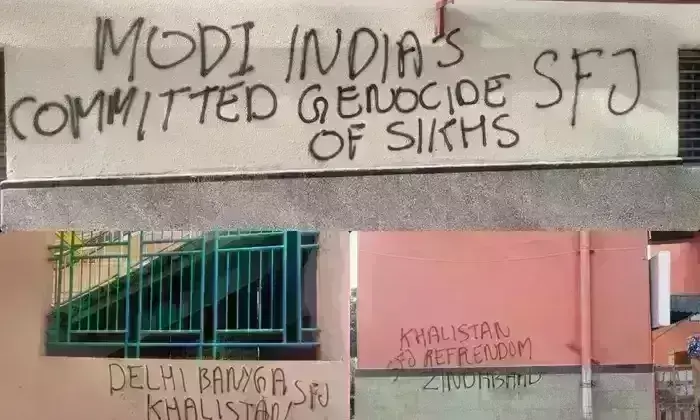 MODI INDIA'S
COMMITTED GENOCIDE SFJ
OF SIKHS
DELHI BANYGA SFJ
KHALISTAN
KHALISTAN
SFJ REFRENDOM
ZINDABAAD